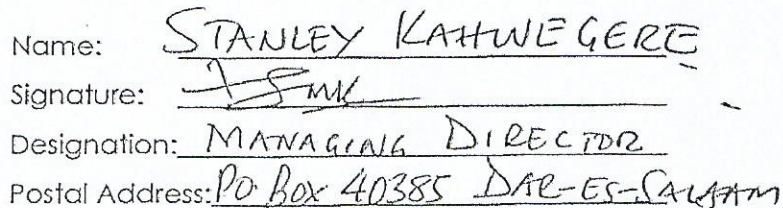 Name: STANLEY KAHWEGERE
Signature:
Designation: MANAGING DIRECTOR
Postal Address: PO BOX 40385 DAR-ES-SALAAM